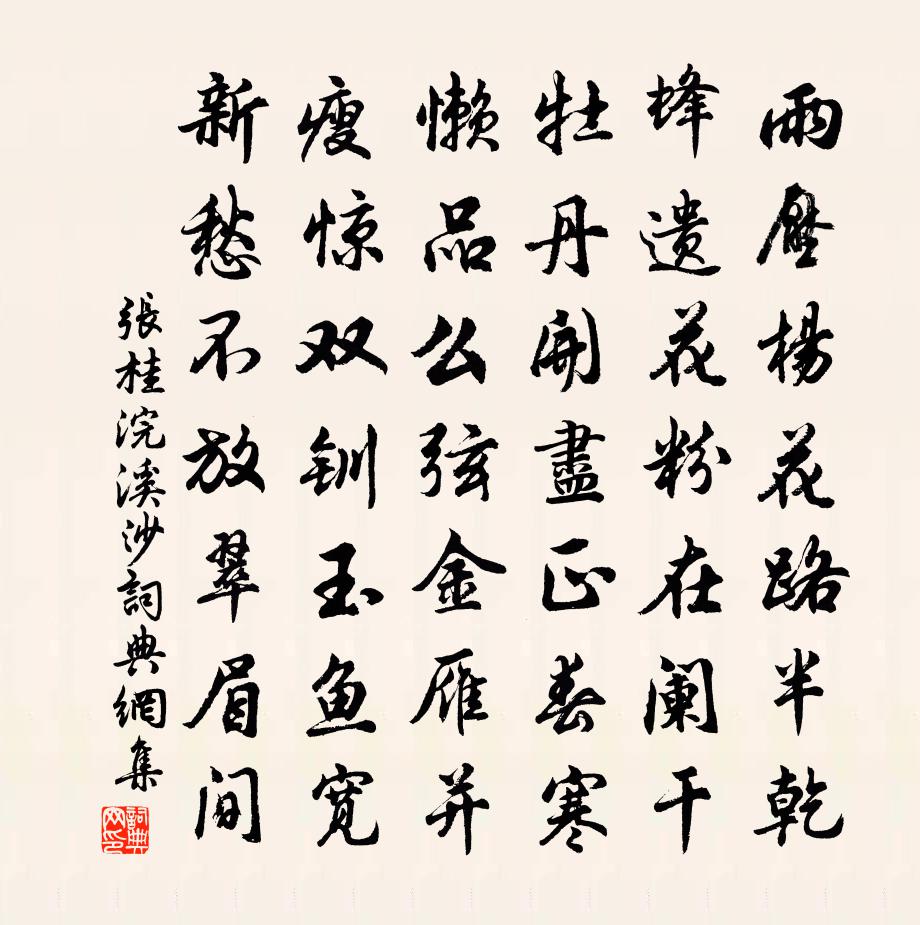 雨壓楊花路半乾
蜂遗花粉在阑干
牡丹開盡正春寒
懒品么弦金雁并
瘦惊双钏玉鱼寬
新愁不放翠眉间
張桂浣溪沙詞典網集
詞典网印